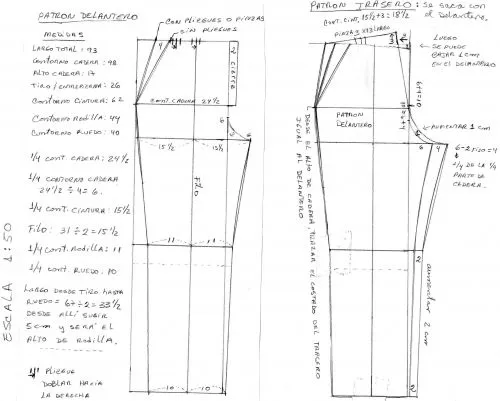 PATRON DELANTERO
MEDIDAS
LARGO TOTAL : 93
CONTORNO CADERA : 98
ALTO CADERA : 17
TIRO / ENTREPIERNA : 26
CONTORNO CINTURA : 62
CONTORNO RODILLA : 44
CONTORNO RUEDO : 40
1/4 CONT. CADERA : 24 1/2
1/4 CONTORNO CADERA
24 1/2 ÷ 4 = 6.
1/4 CONT. CINTURA : 15 1/2
FILO : 31 ÷ 2 = 15 1/2
1/4 CONT. RODILLA : 11
1/4 CONT. RUEDO. 10
LARGO DESDE TIRO HASTA
RUEDO = 67 ÷ 2 = 33 1/2
DESDE ALLI SUBIR
5 cm Y SERÁ EL
ALTO DE RODILLA.
PLIEGUE
DOBLAR HACIA
LA DERECHA
ESCALA 1:50
CON PLIEGUES O PINZAS
SIN PLIEGUES
4
2 CIERRE
CONT. CADERA 24 1/2
6
6
15 1/2
15 1/2
FILO
11
11
10
10
PATRON TRASERO : SE SACA CON
EL DELANTERO.
CONT. CINT. 15 1/2 + 3 = 18 1/2
PINZA 3 X 13 LARGO
3
LUEGO
SE PUEDE
BAJAR 1 CM
EN EL DELANTERO
6+4=10
PATRON
DELANTERO
AUMENTAR 1 cm
6
4
6-2 FIJO = 4
2/4 DE LA 1/4
PARTE DE
CADERA.
DESDE EL ALTO DE CADERA, TRAZAR EL COSTADO DEL TRASERO
IGUAL AL DELANTERO
2
AUMENTAR 2 cm
2